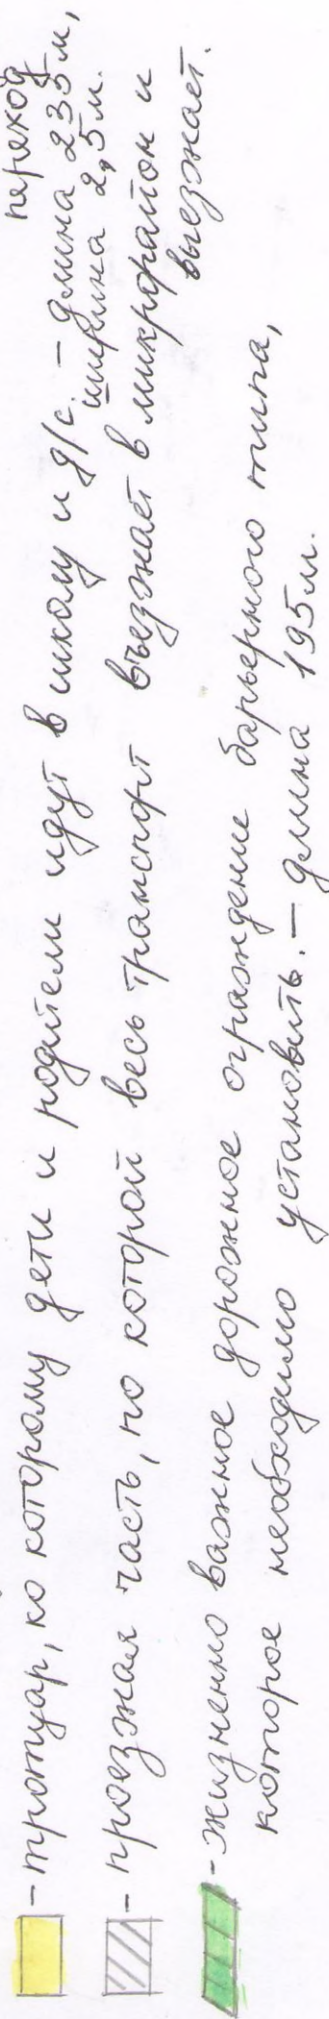 переход
- тротуар, по которому дети и родители идут в школу и д/с. - длина 235 м,
ширина 2,5 м.
- проезжая часть, по которой весь транспорт въезжает в микрорайон и
выезжает.
- жизненно важное дорожное ограждение барьерного типа,
которое необходимо установить. - длина 195 м.